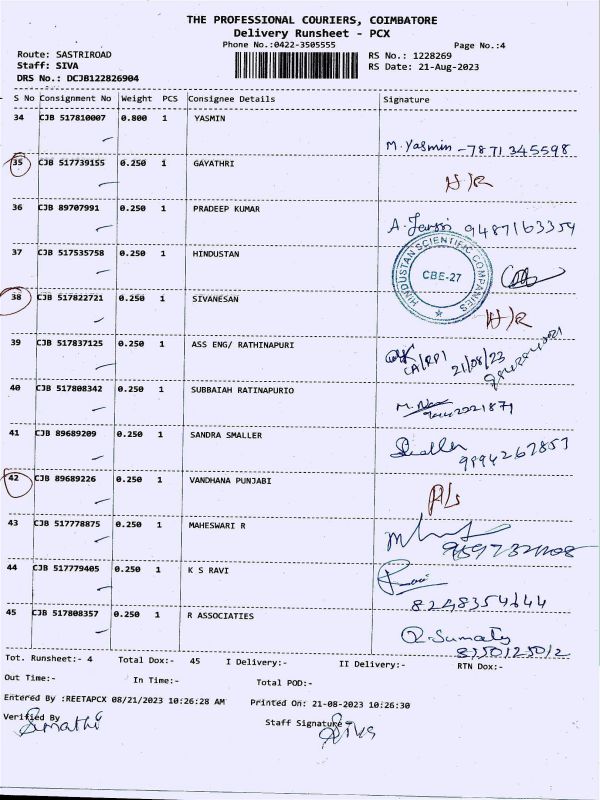 THE PROFESSIONAL COURIERS, COIMBATORE
Delivery Runsheet - PCX
Phone No.:0422-3505555
Page No.:4
Route: SASTRIROAD
RS No.: 1228269
Staff: SIVA
RS Date: 21-Aug-2023
DRS No.: DCJB122826904
S No Consignment No Weight PCS Consignee Details Signature
34 CJB 517810007 0.800 1 YASMIN
M. Yasmin - 7871345598
35 CJB 517739155 0.250 1 GAYATHRI
H/R
36 CJB 89707991 0.250 1 PRADEEP KUMAR
A. 9487163354
37 CJB 517535758 0.250 1 HINDUSTAN
HINDUSTAN SCIENTIFIC COMPANIES
CBE-27
38 CJB 517822721 0.250 1 SIVANESAN
H/R
39 CJB 517837125 0.250 1 ASS ENG/ RATHINAPURI
CA/RPI 21/08/23
40 CJB 517808342 0.250 1 SUBBAIAH RATINAPURIO
M.
41 CJB 89689209 0.250 1 SANDRA SMALLER
9994267857
42 CJB 89689226 0.250 1 VANDHANA PUNJABI
43 CJB 517778875 0.250 1 MAHESWARI R
44 CJB 517779405 0.250 1 K S RAVI
8248354644
45 CJB 517808357 0.250 1 R ASSOCIATIES
R. Sumathy
Tot. Runsheet:- 4 Total Dox:- 45 I Delivery:- II Delivery:- RTN Dox:-
Out Time:- In Time:- Total POD:-
Entered By :REETAPCX 08/21/2023 10:26:28 AM Printed On: 21-08-2023 10:26:30
Verified By Staff Signature
Sumathi Siva